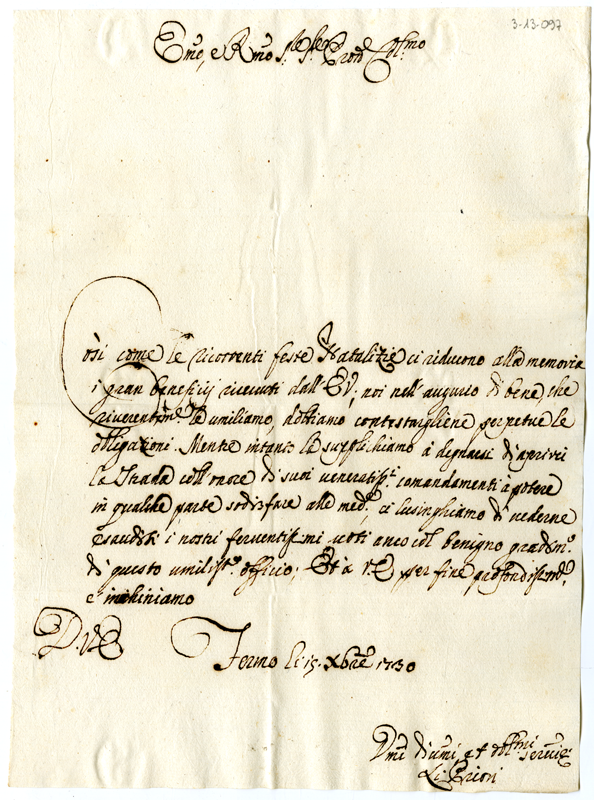 3-13-097
Emo, e Rmo Sig.re Sig.re Prone Col.mo
Così come le ricorrenti feste Natalizie ci riducono alla memoria
i gran beneficij ricevuti dall' E.V.; noi nell' augurio di bene, che
riverentem.e le umiliamo, dobbiamo contestargliene perpetue le
obligazioni. Mentre intanto la supplichiamo à degnarsi di aprirci
la Strada coll' onore di suoi veneratis.mi comandamenti à potere
in qualche parte sodisfare alle med.e, ci lusinghiamo di vederne
esauditi i nostri ferventissimi voti anco col benigno gradim.o
di questo umiliss.o officio; Et à V.E. per fine profondissam.e
c' inchiniamo
D.V.E.
Fermo li 15. Xbre 1730
Umi Divmi, et obl.mi servit.i
Li Priori